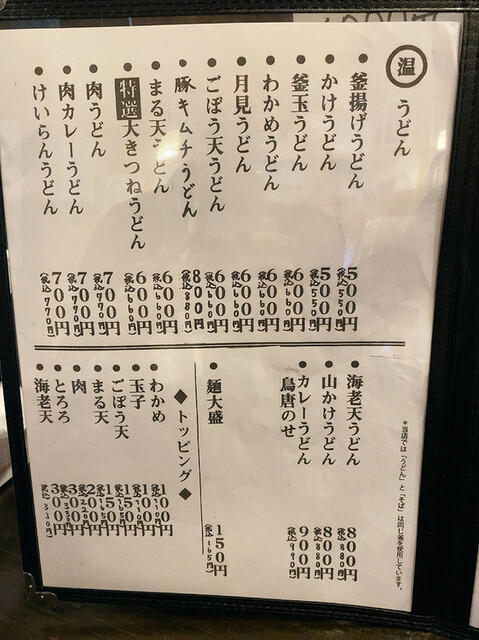 温 うどん
釜揚げうどん 500円(税込550円)
かけうどん 500円(税込550円)
釜玉うどん 600円(税込660円)
わかめうどん 600円(税込660円)
月見うどん 600円(税込660円)
ごぼう天うどん 600円(税込660円)
豚キムチうどん 800円(税込880円)
まる天うどん 600円(税込660円)
特選大きつねうどん 600円(税込660円)
肉うどん 700円(税込770円)
肉カレーうどん 700円(税込770円)
けいらんうどん 700円(税込770円)
*当店では「うどん」と「そば」は同じ釜を使用しています。
海老天うどん 800円(税込880円)
山かけうどん 800円(税込880円)
カレーうどん
鳥唐のせ 900円(税込990円)
麺大盛 150円(税込165円)
◆トッピング◆
わかめ 100円(税込110円)
玉子 100円(税込110円)
ごぼう天 150円(税込165円)
まる天 150円(税込165円)
肉 200円(税込220円)
とろろ 300円(税込330円)
海老天 300円(税込330円)